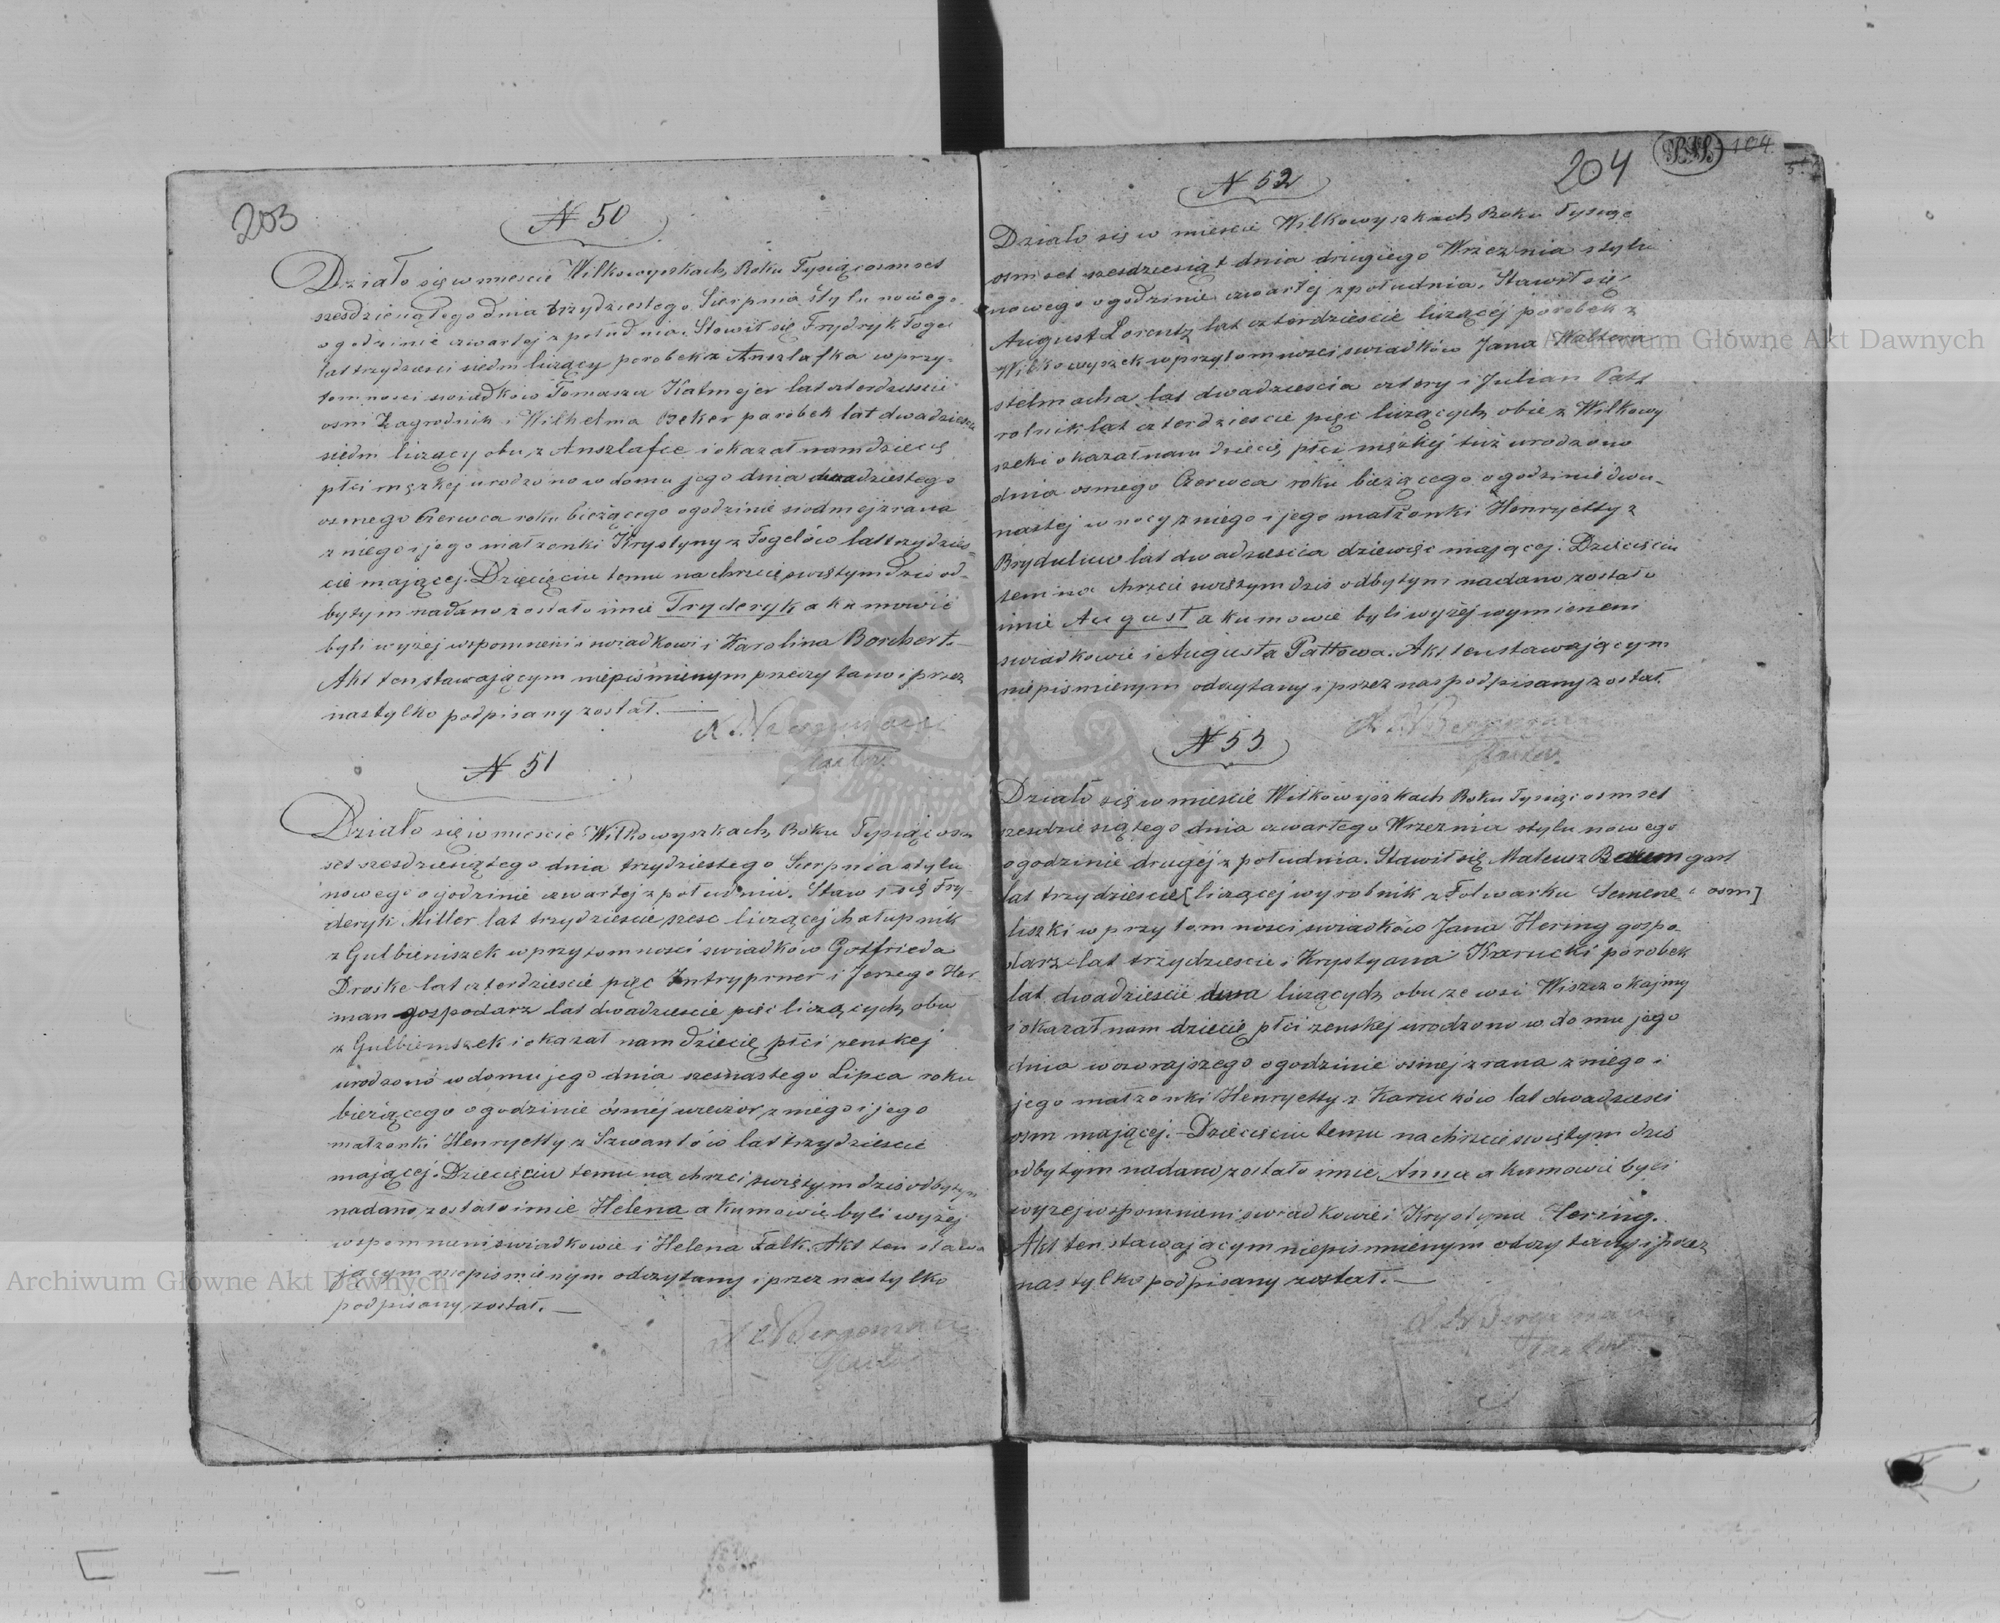 203
N 50
Działo się w mieście Wilkowyszkach, Roku Tysiąc osmset
szesdziesiątego dnia trzydziestego Sierpnia stylu nowego
o godzinie czwartej z południa. Stawił się Frydryk Fogel
lat trzydzieści siedm liczący parobek z Anszlafka w przy-
tomności świadków Tomasza Katmojer lat czterdzieście
osm Zagrodnik i Wilhelma Beker parobek lat dwadzieścia
siedm liczący obu z Anszlafce i okazał nam dziecię
płci męzkiej urodzono w domu jego dnia dwadziestego
osmego Czerwca roku bieżącego o godzinie siodmej z rana
z niego i jego małżonki Krystyny z Fogelów lat trzydzieś-
cie mającej. Dziecięciu temu na chrzcie świętym dziś od-
bytym nadano zostało imie Fryderyk a kumowie
byli wyżej wspomnieni świadkowi i Karolina Borchert.
Akt ten stawającym niepiśmienym przeczytano i przez
nas tylko podpisany został. —
Bergemann
Pastor
N 51
Działo się w mieście Wilkowyszkach, Roku Tysiąc osm
set szesdziesiątego dnia trzydziestego Sierpnia stylu
nowego o godzinie czwartej z południa. Stawił się Fry-
deryk Miller lat trzydzieście szesc liczącej chałupnik
z Gulbieniszek w przytomności świadków Gottfrieda
Droske lat czterdzieście pięc Intryprner i Jerzego Her-
man gospodarz lat dwadzieście pięc liczących, obu
z Gulbieniszek i okazał nam dziecię płci zenskej
urodzono w domu jego dnia szesnastego Lipca roku
bieżącego o godzinie ósmej wieczor, z niego i jego
matzonki Henryetty z Szwantów lat trzydzieście
mającej. Dziecięciu temu na chrzci świętym dziś odbytym
nadano zostało imie Helena a kumowie byli wyżej
wspomnieni świadkowie i Helena Falk. Akt ten stawa
jącym niepiśmienym odczytany i przez nas tylko
podpisany został. —
Bergemann
N 52
204
104
Działo się w mieście Wilkowyszkach Roku Tysiąc
osmset szesdziesiąt dnia drugiego Wrzeznia stylu
nowego o godzinie czwartej z południa. Stawił się
August Lorentz lat czterdzieście liczącej parobek z
Wilkowyszek w przytomności świadków Jana Waltera
stelmacha lat dwadzieścia cztery i Julian Patz
rolnik lat czterdzieście pięc liczących, obie z Wilkowy
szek i okazał nam dziecię płci męzkiej tuż urodzono
dnia osmego Czerwca roku bieżącego o godzinie dwu-
nastej w nocy z niego i jego małżonki Henryetty z
lat dwadzieścia dziewięc mającej. Dziecięciu
temu na chrzcie świętym dziś odbytym nadano zostało
imie August a kumowie byli wyżej wymienieni
świadkowie i Augusta Pattowa. Akt ten stawającym
niepismienym odczytany i przez nas podpisany został.
Bergemann
Pastor
N 53
Działo się w mieście Wilkowyszkach Roku Tysiąc osmset
szesdziesiątego dnia czwartego Wrzeznia stylu nowego
o godzinie drugiej z południa. Stawił się Mateusz Baumgart
lat trzydzieście [liczącej wyrobnik z Folwarku Semene- osm]
liszki w przytomności świadków Jana Hering gospo-
darz lat trzydzieście i Krystyana Karucki parobek
lat dwadzieście dwa liczących, obu ze wsi Wiszczokajmy
i okazał nam dziecię płci zenskiej urodzono w domu jego
dnia wczorajszego o godzinie osmej z rana z niego i
jego matzonki Henryetty z Karucków lat dwadzieści
osm mającej. – Dziecięciu temu na chrzcie świętym dziś
odbytym nadano zostało imie Anna a kumowie byli
wyzej wspomnieni świadkowie i Krystyna Hering.
Akt ten stawającym niepismienym odczytany i przez
nas tylko podpisany został. —
Bergemann
Pastor
Archiwum Główne Akt Dawnych
Archiwum Główne Akt Dawnych